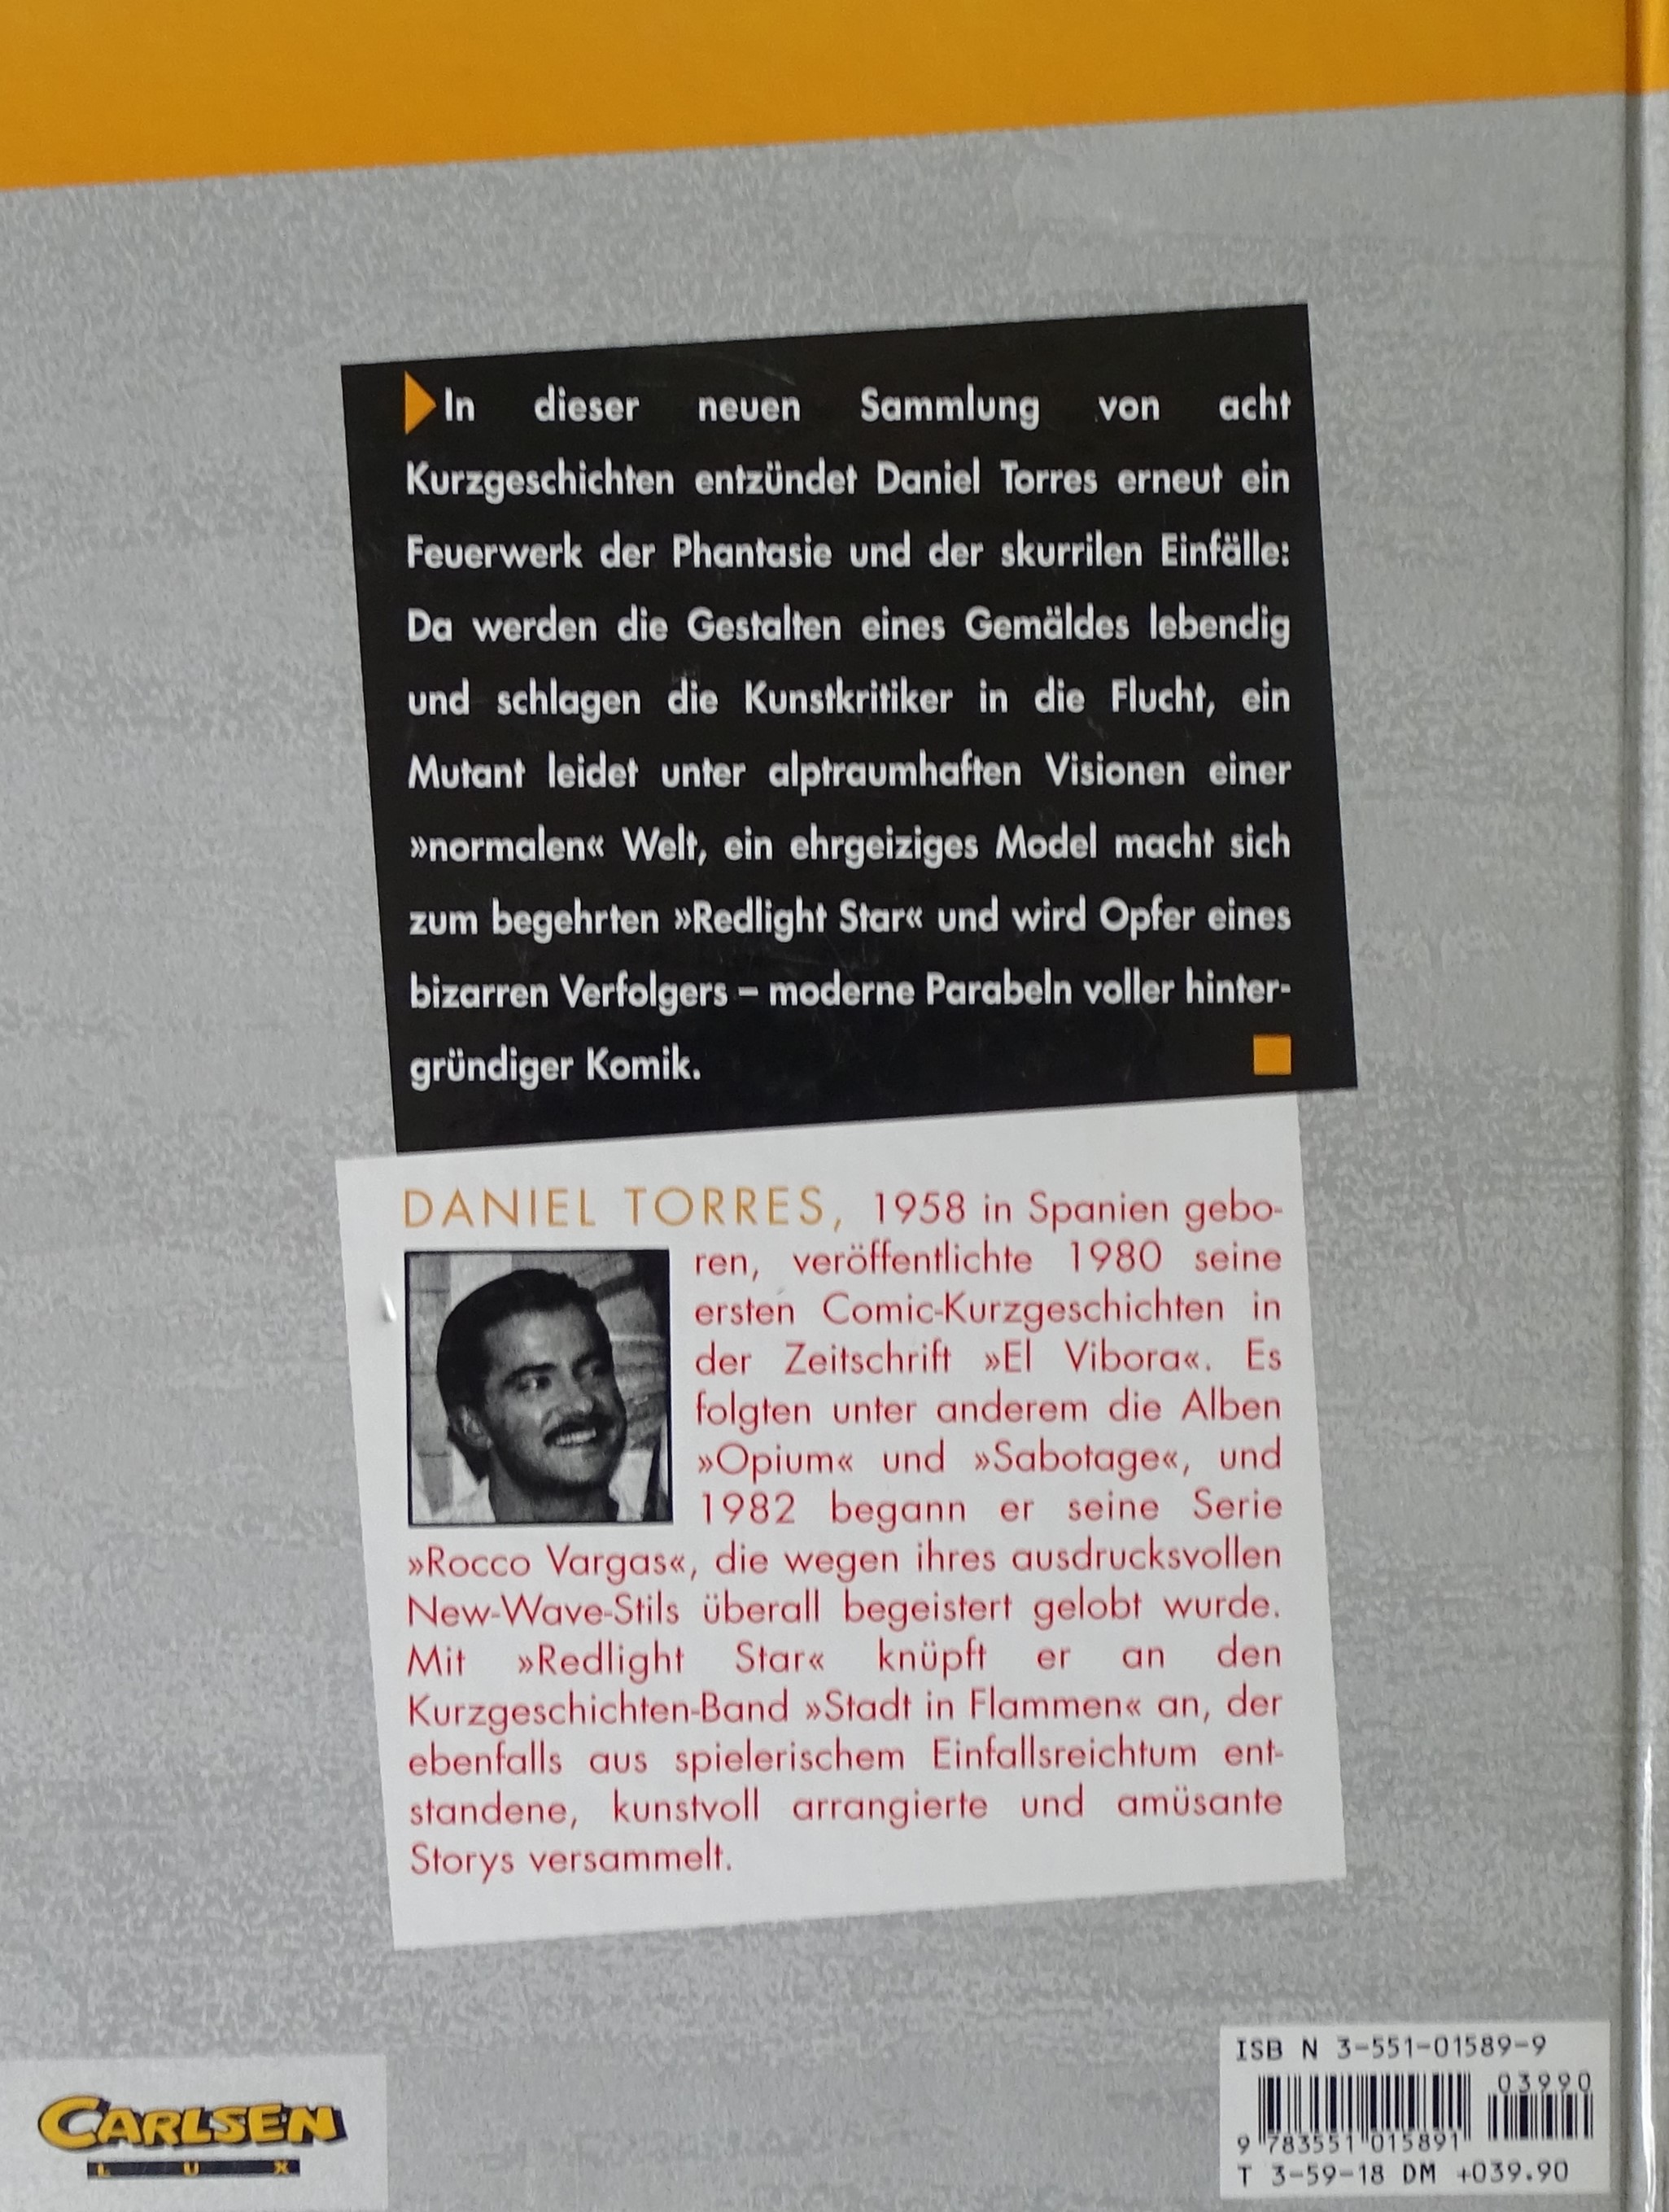 In dieser neuen Sammlung von acht
Kurzgeschichten entzündet Daniel Torres erneut ein
Feuerwerk der Phantasie und der skurrilen Einfälle:
Da werden die Gestalten eines Gemäldes lebendig
und schlagen die Kunstkritiker in die Flucht, ein
Mutant leidet unter alptraumhaften Visionen einer
»normalen« Welt, ein ehrgeiziges Model macht sich
zum begehrten »Redlight Star« und wird Opfer eines
bizarren Verfolgers – moderne Parabeln voller hinter-
gründiger Komik.
DANIEL TORRES, 1958 in Spanien gebo-
ren, veröffentlichte 1980 seine
ersten Comic-Kurzgeschichten in
der Zeitschrift »El Vibora«. Es
folgten unter anderem die Alben
»Opium« und »Sabotage«, und
1982 begann er seine Serie
»Rocco Vargas«, die wegen ihres ausdrucksvollen
New-Wave-Stils überall begeistert gelobt wurde.
Mit »Redlight Star« knüpft er an den
Kurzgeschichten-Band »Stadt in Flammen« an, der
ebenfalls aus spielerischem Einfallsreichtum ent-
standene, kunstvoll arrangierte und amüsante
Storys versammelt.
CARLSEN
LUX
ISB N 3-551-01589-9
03990
9 783551 015891
T 3-59-18 DM +039.90